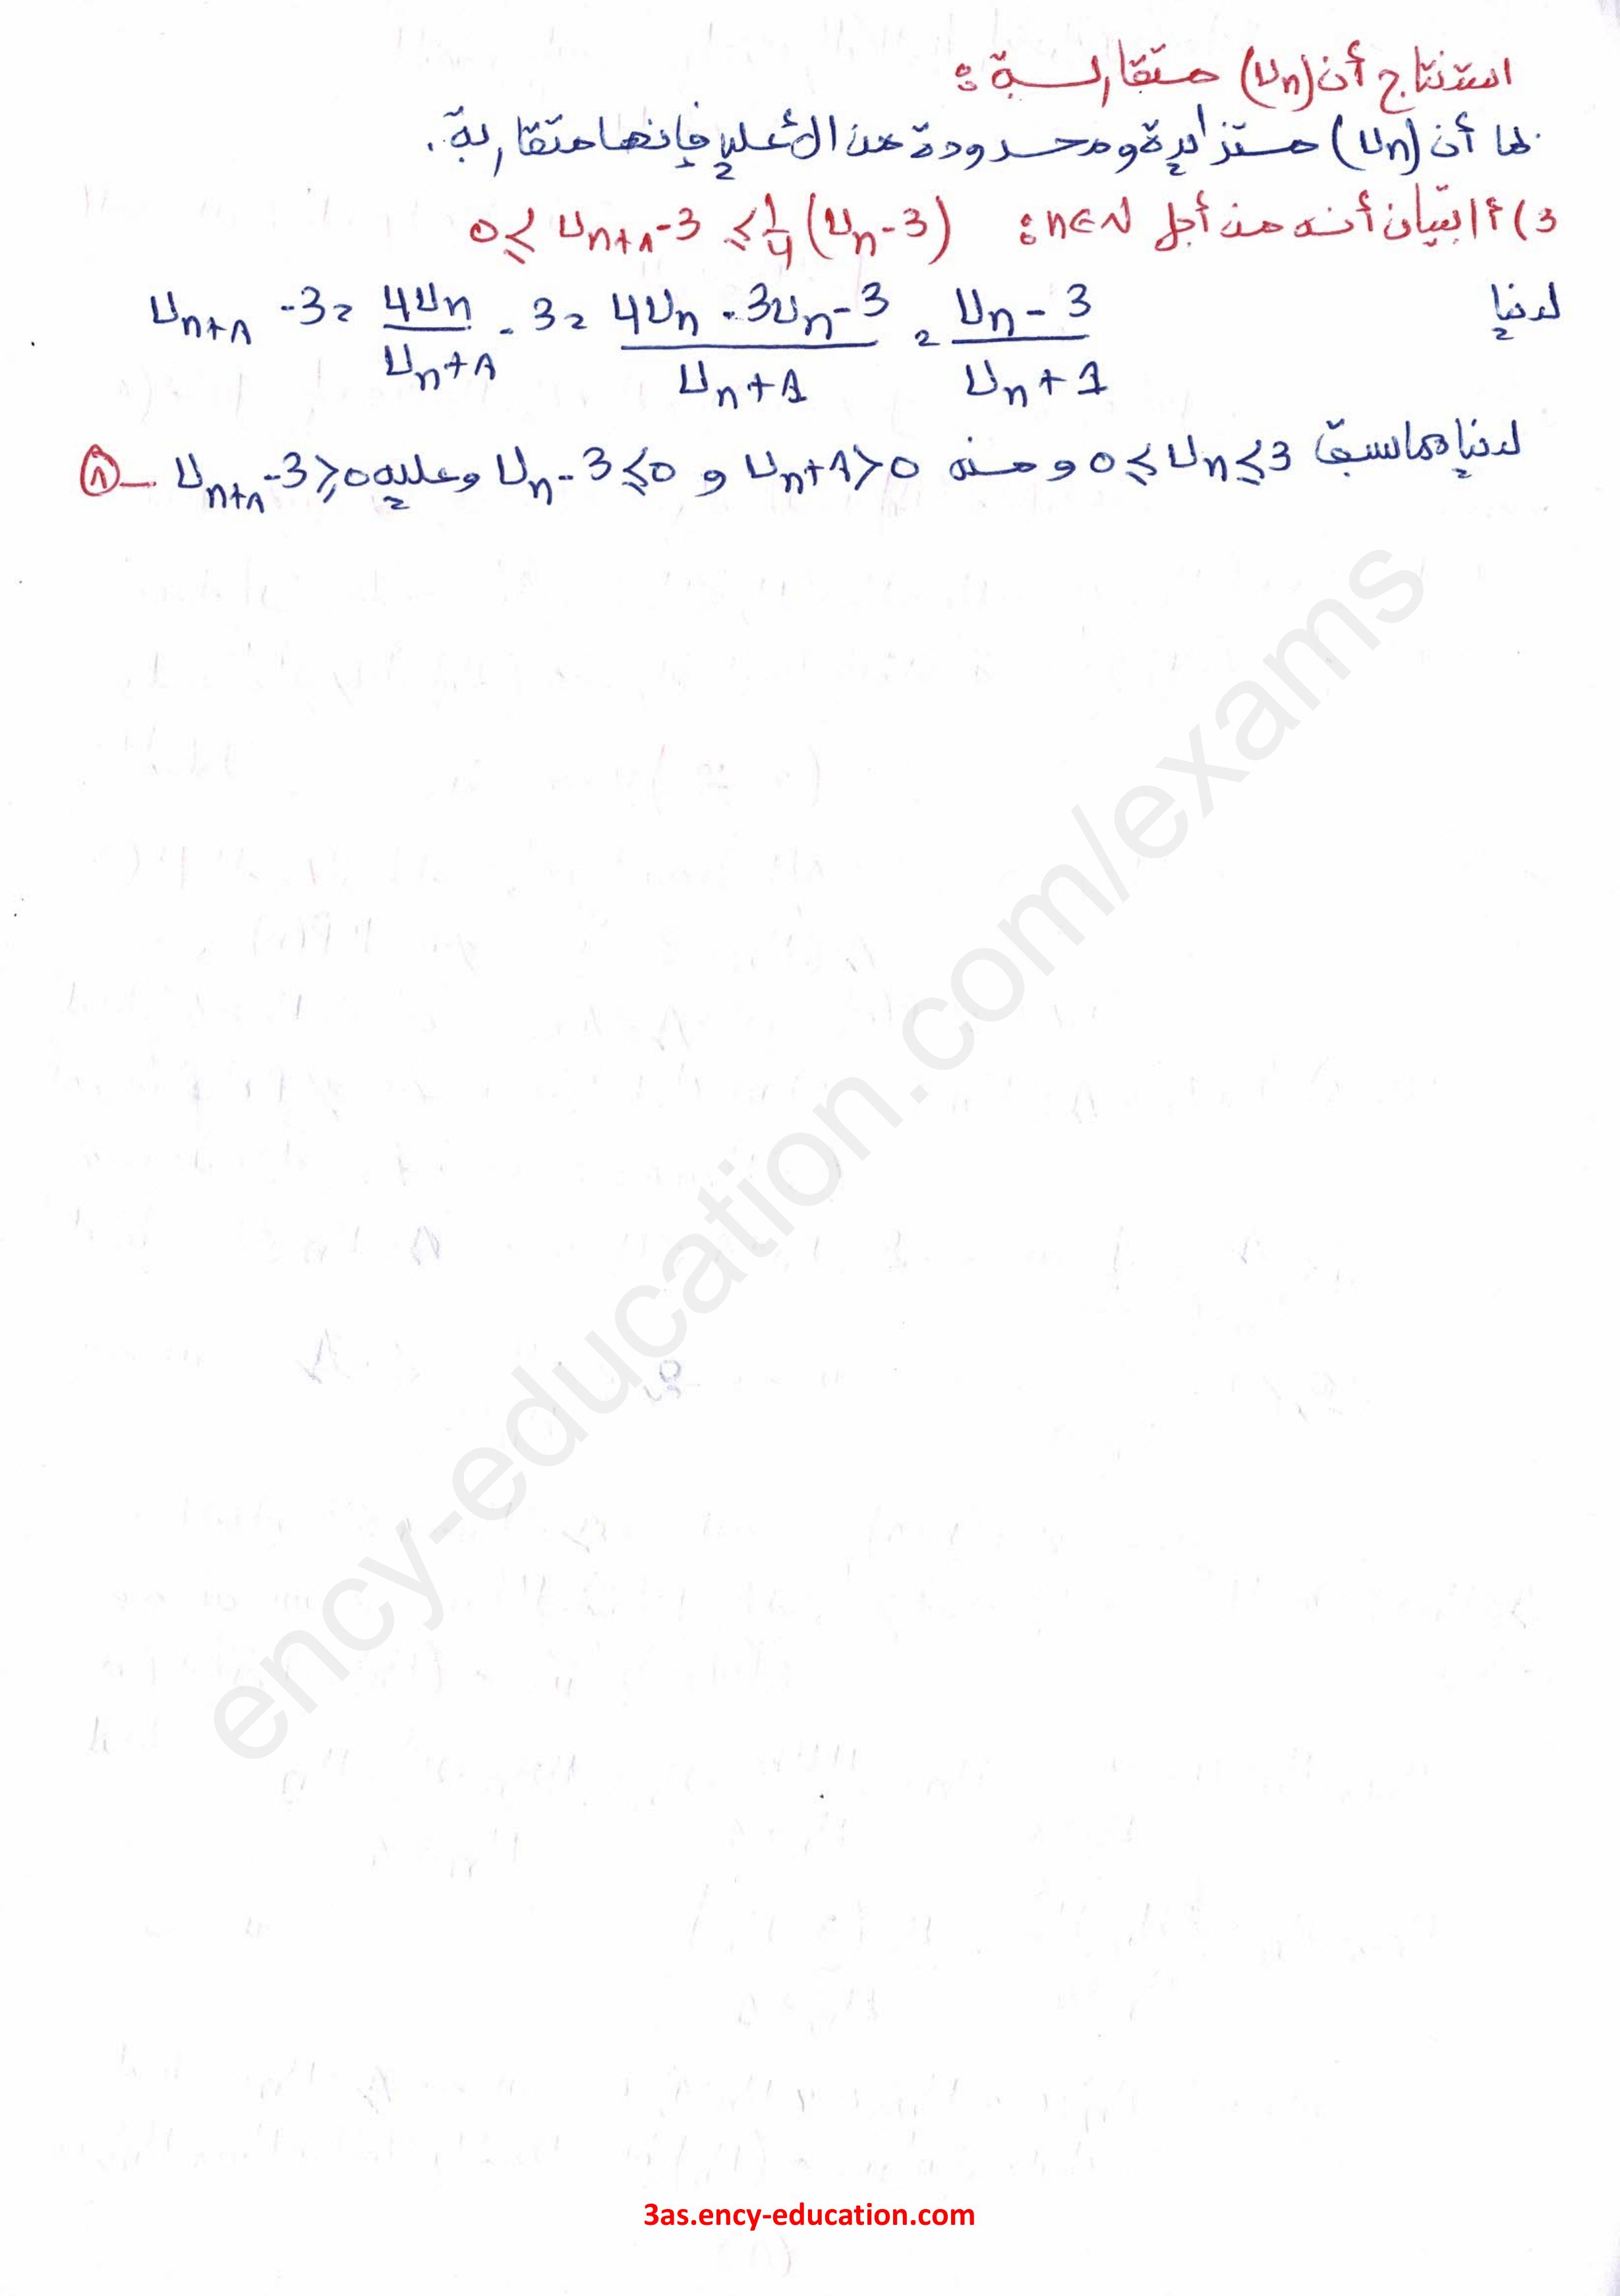 استنتاج أن (Un) متقاربة :
بما أن (Un) متزايدة ومحدودة من الأعلى فإنها متقاربة .
3) أ) تبيان أنه من أجل n∈N : 0 ⩽ Un+1 - 3 ⩽ 1/4 (Un - 3)
لدينا Un+1 - 3 = 4Un / Un+1 - 3 = 4Un - 3Un - 3 / Un+1 = Un - 3 / Un + 1
لدينا مما سبق 0 ⩽ Un ⩽ 3 ومنه Un+1 > 0 و Un - 3 ⩽ 0 وعليه Un+1 - 3 ⩾ 0 — ①
ency-education.com/exams
3as.ency-education.com